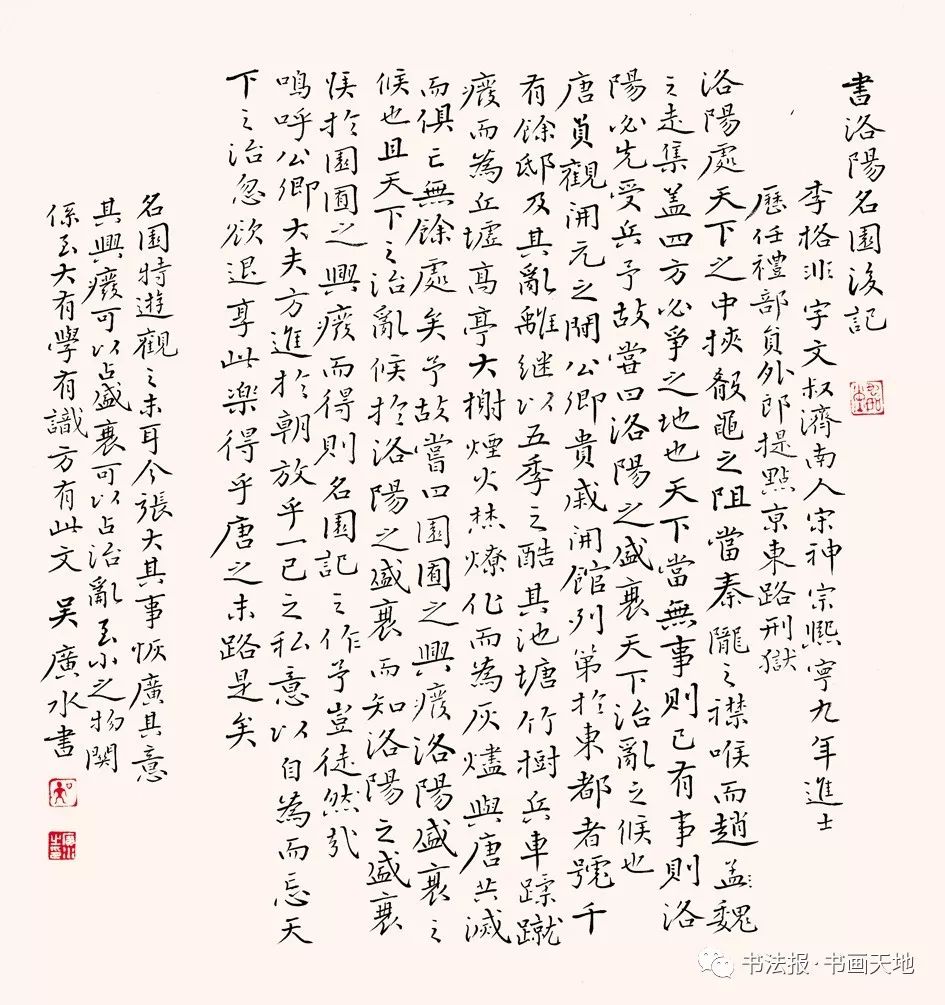 書洛陽名園後記
李格非字文叔濟南人宋神宗熙寧九年進士
歷任禮部員外郎提點京東路刑獄
洛陽處天下之中挾殽黽之阻當秦隴之襟喉而趙孟魏
之走集盖四方必爭之地也天下當無事則已有事則洛
陽必先受兵予故嘗曰洛陽之盛衰天下治亂之候也
唐貞觀開元之間公卿貴戚開館列第於東都者號千
有餘邸及其亂離继以五季之酷其池塘竹樹兵車蹂蹴
癈而為丘墟高亭大榭煙火焚燎化而為灰燼與唐共滅
而俱亡無餘處矣予故嘗曰園圃之興癈洛陽盛衰之
候也且天下之治亂候於洛陽之盛衰而知洛陽之盛衰
候於園圃之興癈而得則名園記之作予豈徒然哉
嗚呼公卿大夫方進於朝放乎一己之私意以自為而忘天
下之治忽欲退享此樂得乎唐之末路是矣
名園特遊觀之末耳今張大其事恢廣其意
其興癈可以占盛衰可以占治亂至小之物関
係至大有學有識方有此文 吴廣水書
书法报·书画天地